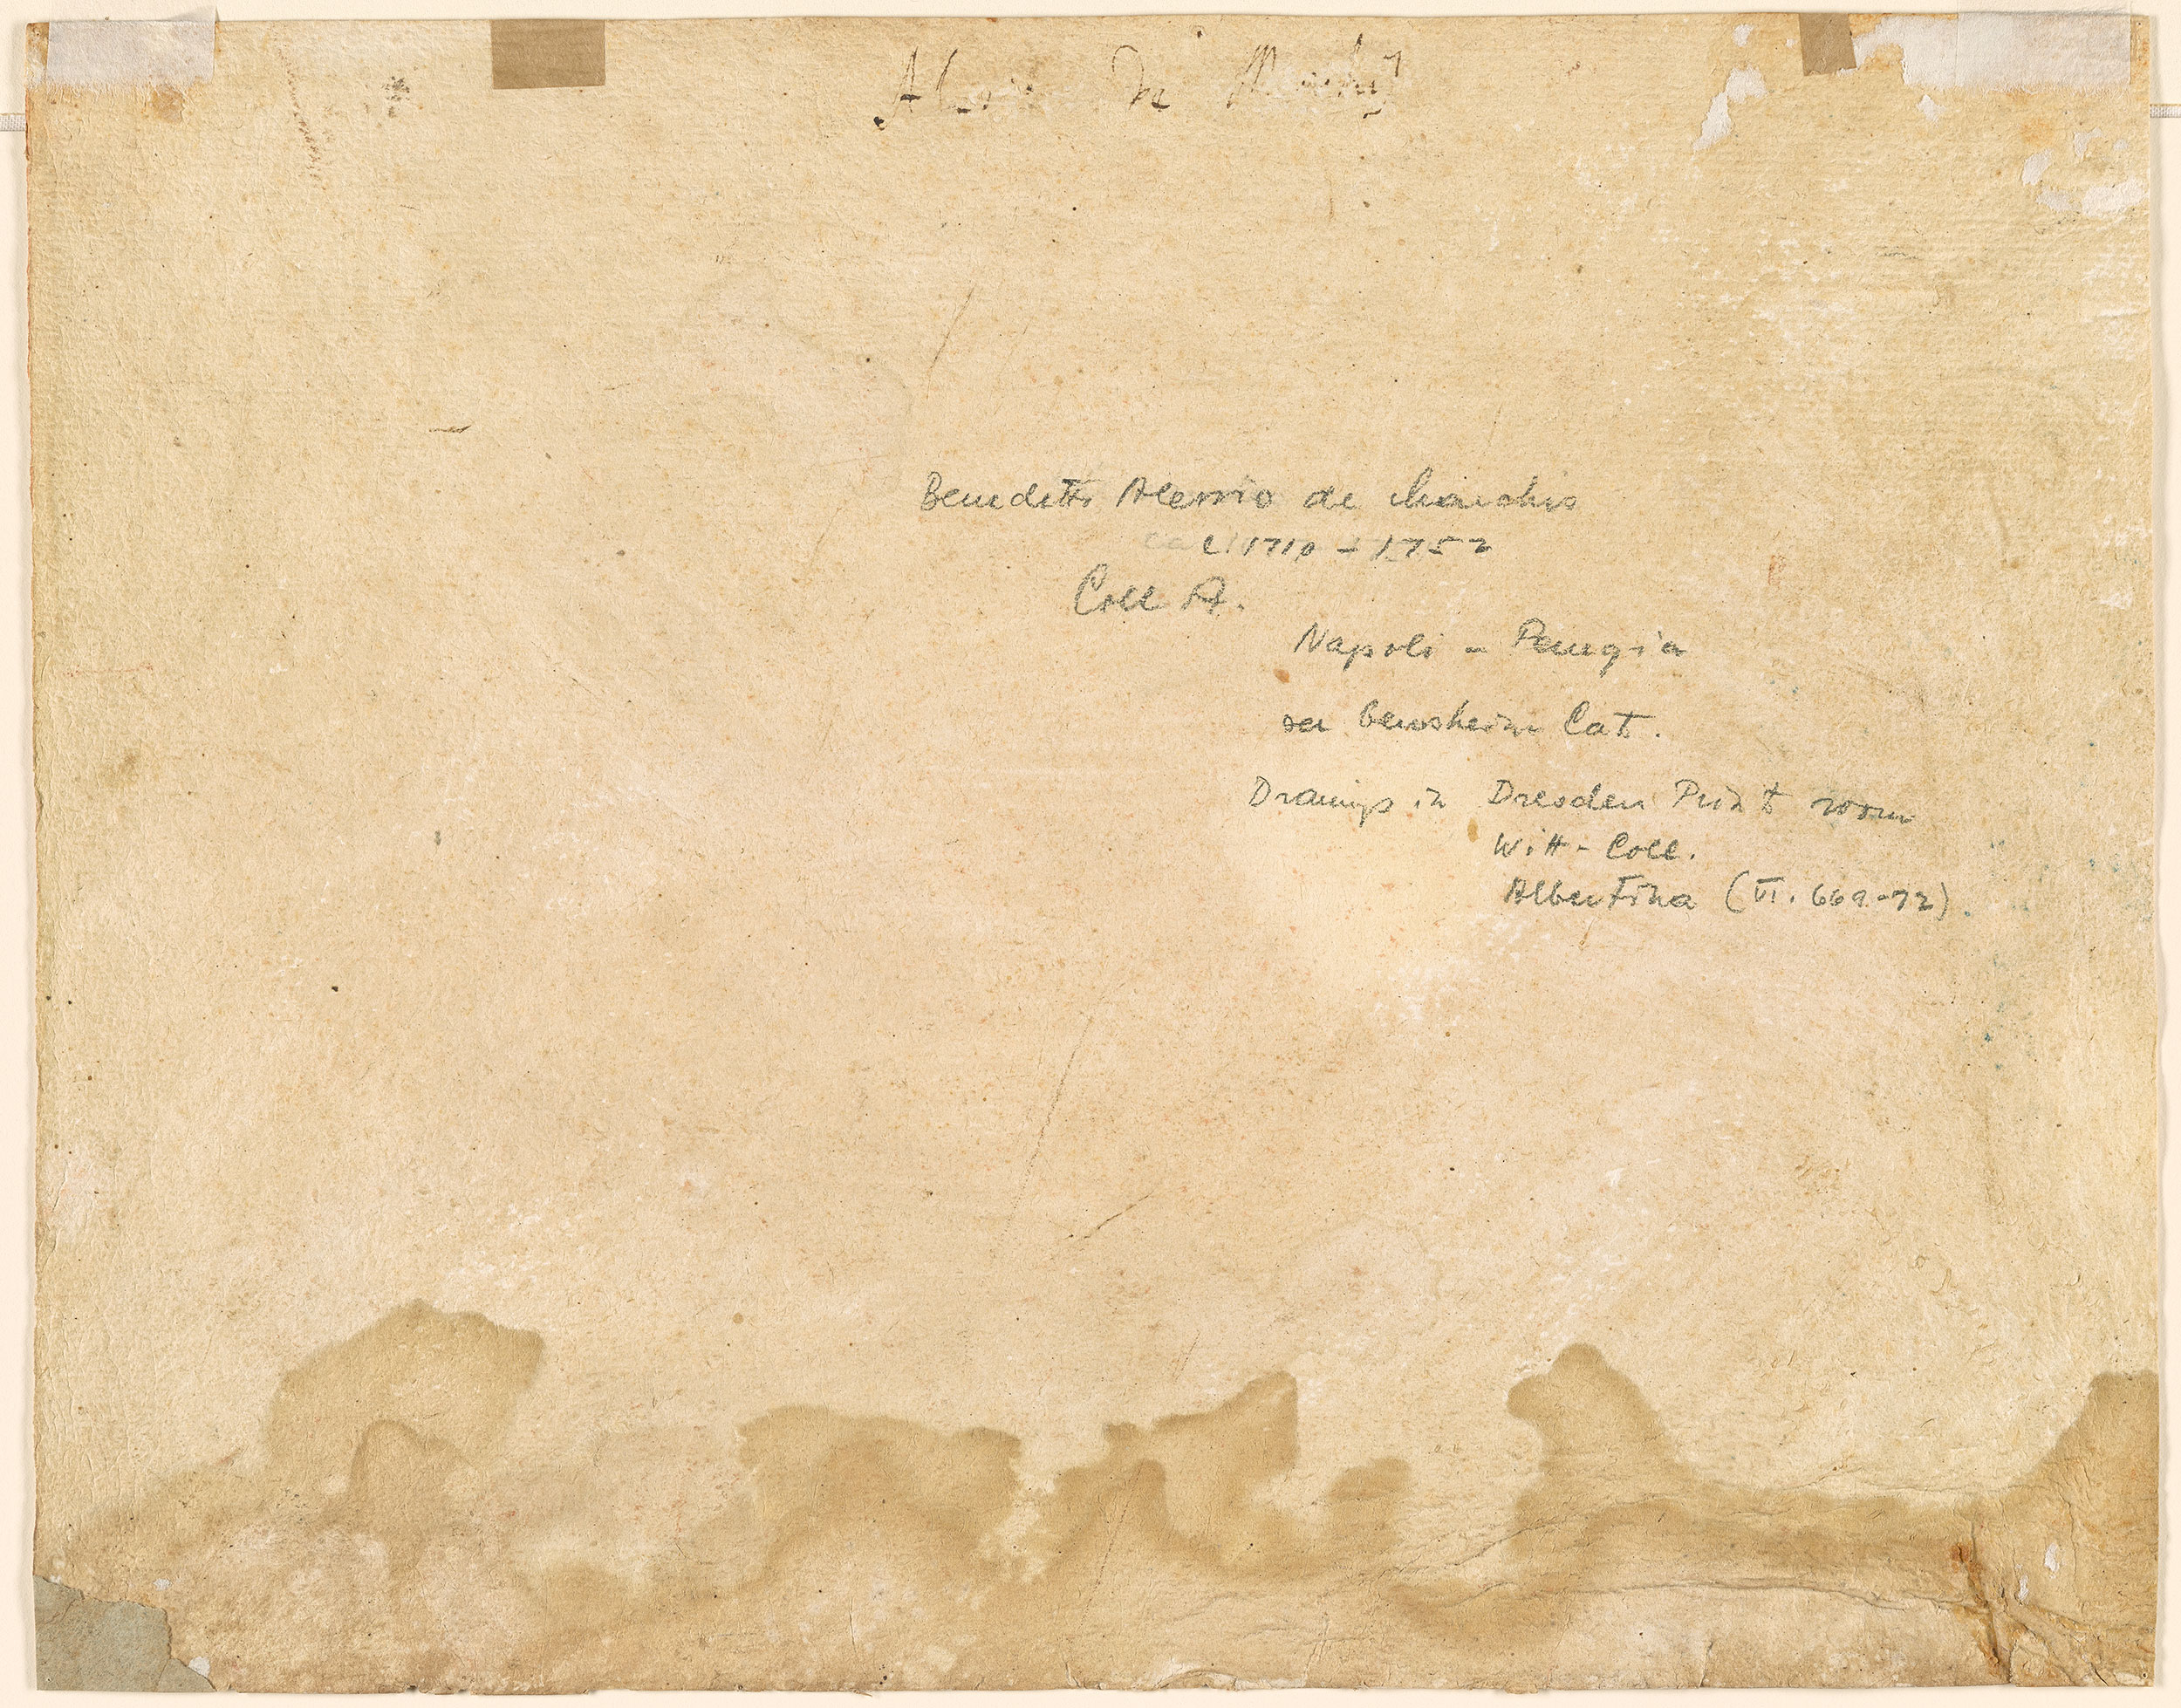 De
Benedetto Alessio de Marchis
c. 1710 - 1752
Coll A.
Napoli - Perugia
Bernsheim Cat.
Drawings in Dresden Print room
Witt - Coll.
Albertina (VI. 669-72)